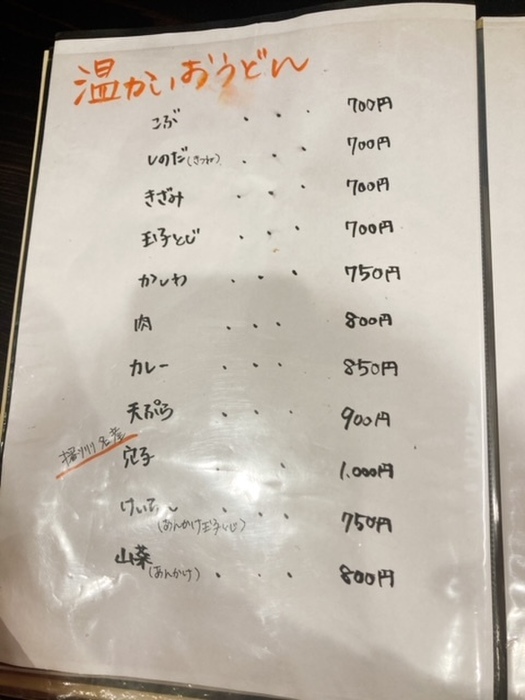 温かいおうどん
こぶ ・・・ 700円
しのだ(きつね) ・・・ 700円
きざみ ・・・ 700円
玉子とじ ・・・ 700円
かしわ ・・・ 750円
肉 ・・・ 800円
カレー ・・・ 850円
天ぷら ・・・ 900円
播州名産
穴子 ・・・ 1.000円
けいらん ・・・ 750円
(あんかけ玉子とじ)
山菜 ・・・ 800円
(あんかけ)